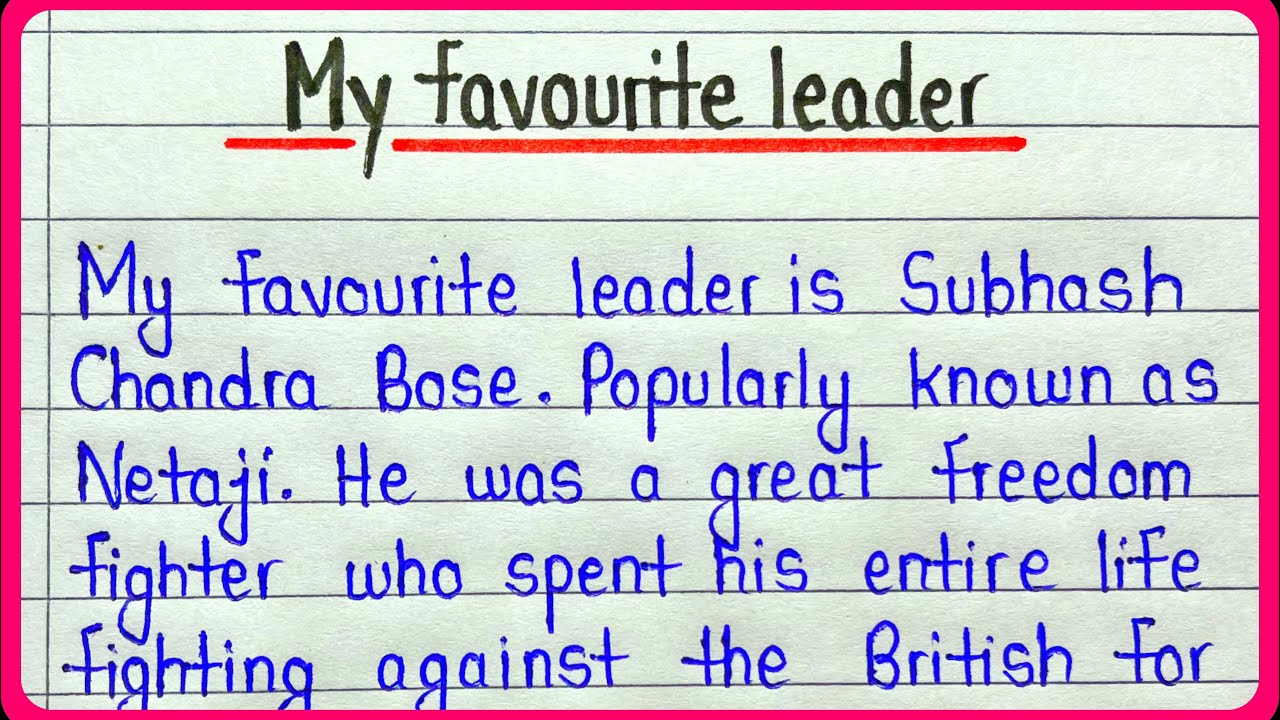 My favourite leader
My favourite leader is Subhash
Chandra Bose. Popularly known as
Netaji. He was a great freedom
fighter who spent his entire life
fighting against the British for